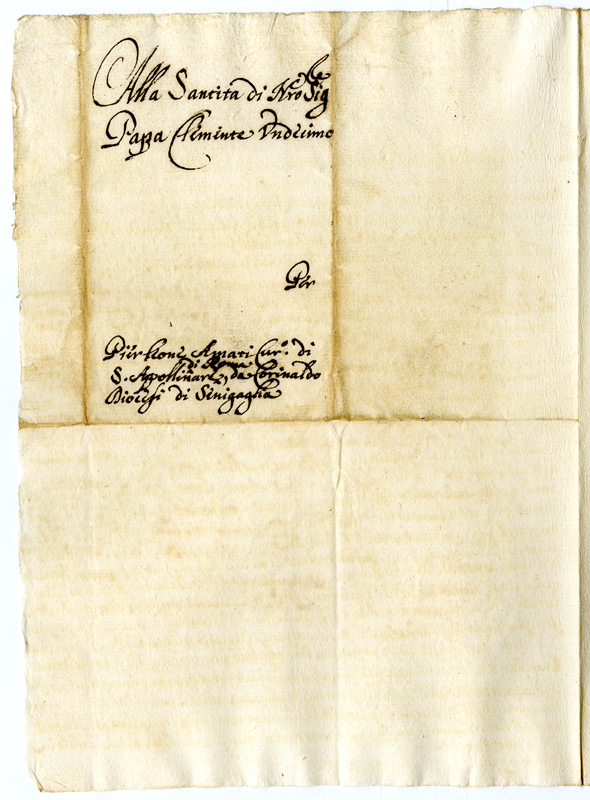 Alla Santità di Nrō Sig.re
Papa Clemente Undecimo
Per
Pier Leone Amati Cur.o di
S. Apollinare di Roma, da Corinaldo
Diocesi di Sinigaglia